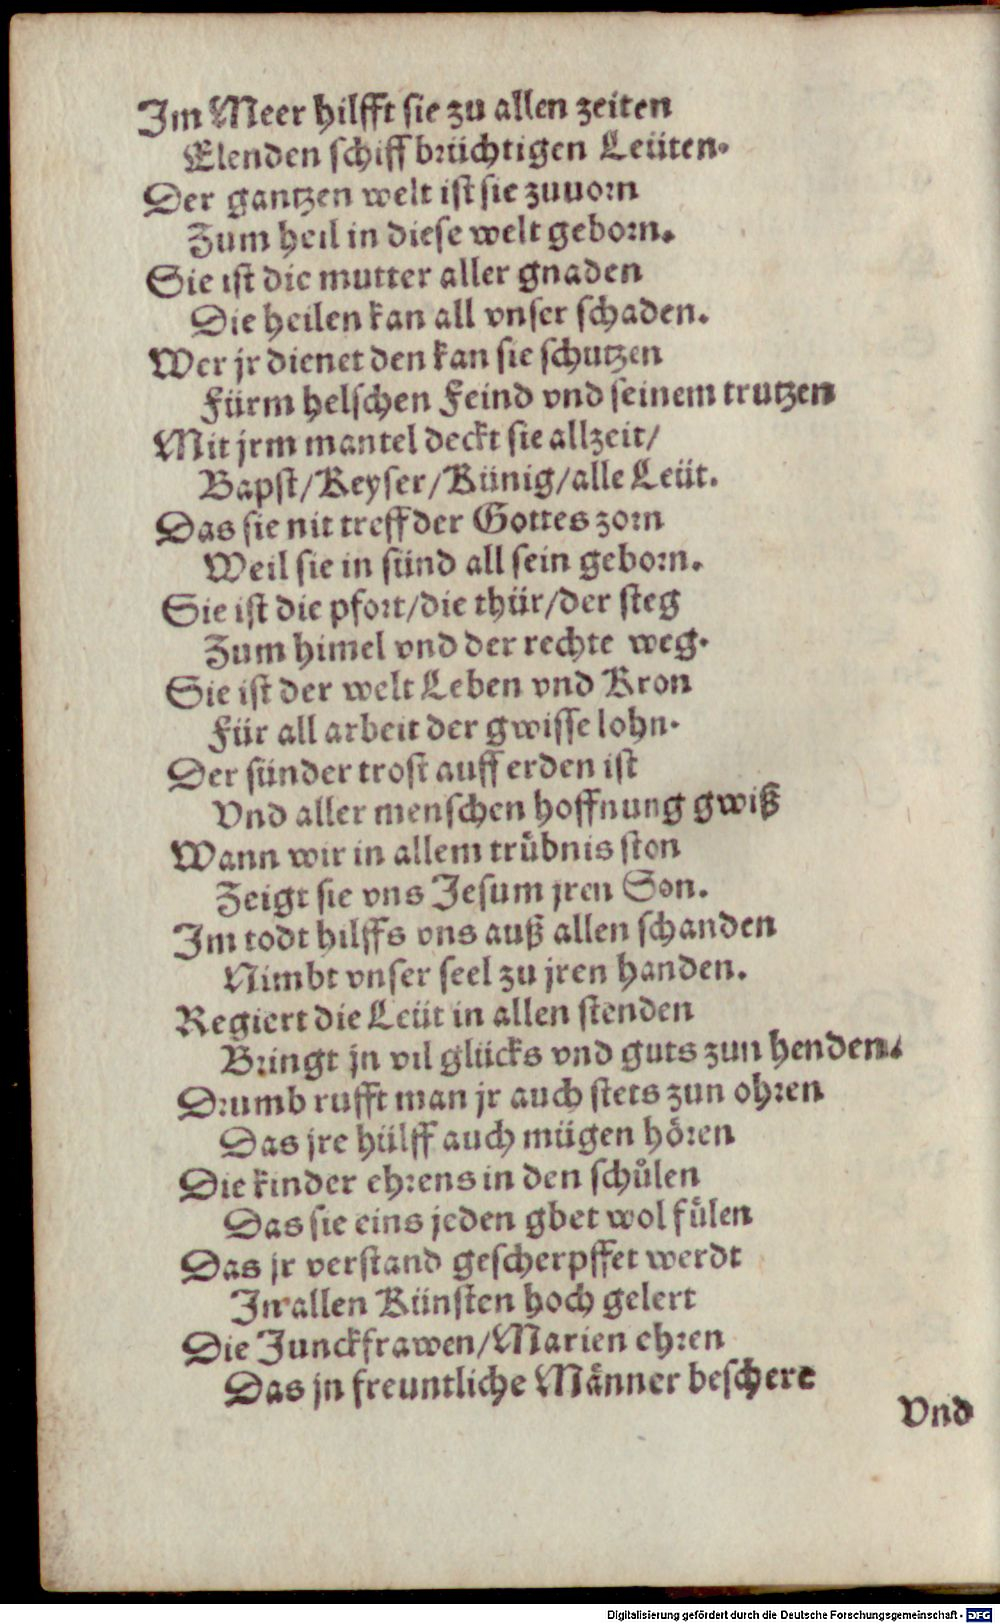 Im Meer hilfft sie zu allen zeiten
Elenden schiff brüchtigen Leüten.
Der gantzen welt ist sie zuuorn
Zum heil in diese welt geborn.
Sie ist die mutter aller gnaden
Die heilen kan all vnser schaden.
Wer jr dienet den kan sie schutzen
Fürm helschen Feind vnd seinem trutzen
Mit jrm mantel deckt sie allzeit/
Bapst/Keyser/Künig/alle Leüt.
Das sie nit treff der Gottes zorn
Weil sie in sünd all sein geborn.
Sie ist die pfort/die thür/der steg
Zum himel vnd der rechte weg.
Sie ist der welt Leben vnd Kron
Für all arbeit der gwisse lohn.
Der sünder trost auff erden ist
Vnd aller menschen hoffnung gwiß
Wann wir in allem trübnis ston
Zeigt sie vns Jesum jren Son.
Im todt hilffs vns auß allen schanden
Nimbt vnser seel zu jren handen.
Regiert die Leüt in allen stenden
Bringt jn vil glücks vnd guts zun henden.
Drumb rufft man jr auch stets zun ohren
Das jre hülff auch mügen hören
Die kinder ehrens in den schůlen
Das sie eins jeden gbet wol fülen
Das jr verstand gescherpffet werdt
In allen Künsten hoch gelert
Die Junckfrawen/Marien ehren
Das jn freuntliche Männer beschere
Vnd
Digitalisierung gefördert durch die Deutsche Forschungsgemeinschaft - DFG